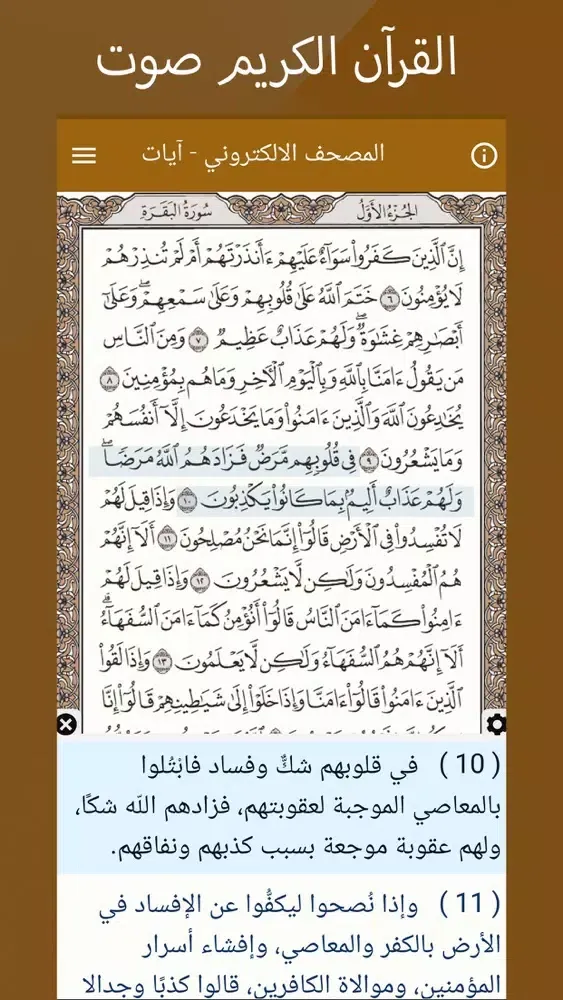 القرآن الكريم صوت
المصحف الالكتروني - آيات
الجُزْءُ الأَوَّلُ
سُورَةُ البَقَرَةِ
إِنَّ ٱلَّذِينَ كَفَرُوا۟ سَوَآءٌ عَلَيْهِمْ ءَأَنذَرْتَهُمْ أَمْ لَمْ تُنذِرْهُمْ
لَا يُؤْمِنُونَ ٦ خَتَمَ ٱللَّهُ عَلَىٰ قُلُوبِهِمْ وَعَلَىٰ سَمْعِهِمْ ۖ وَعَلَىٰٓ
أَبْصَـٰرِهِمْ غِشَـٰوَةٌ ۖ وَلَهُمْ عَذَابٌ عَظِيمٌ ٧ وَمِنَ ٱلنَّاسِ
مَن يَقُولُ ءَامَنَّا بِٱللَّهِ وَبِٱلْيَوْمِ ٱلْـَٔاخِرِ وَمَا هُم بِمُؤْمِنِينَ ٨
يُخَـٰدِعُونَ ٱللَّهَ وَٱلَّذِينَ ءَامَنُوا۟ وَمَا يَخْدَعُونَ إِلَّآ أَنفُسَهُمْ
وَمَا يَشْعُرُونَ ٩ فِى قُلُوبِهِم مَّرَضٌ فَزَادَهُمُ ٱللَّهُ مَرَضًا ۖ
وَلَهُمْ عَذَابٌ أَلِيمٌۢ بِمَا كَانُوا۟ يَكْذِبُونَ ١٠ وَإِذَا قِيلَ لَهُمْ
لَا تُفْسِدُوا۟ فِى ٱلْأَرْضِ قَالُوٓا۟ إِنَّمَا نَحْنُ مُصْلِحُونَ ١١ أَلَآ إِنَّهُمْ
هُمُ ٱلْمُفْسِدُونَ وَلَـٰكِن لَّا يَشْعُرُونَ ١٢ وَإِذَا قِيلَ لَهُمْ
ءَامِنُوا۟ كَمَآ ءَامَنَ ٱلنَّاسُ قَالُوٓا۟ أَنُؤْمِنُ كَمَآ ءَامَنَ ٱلسُّفَهَآءُ ۗ
أَلَآ إِنَّهُمْ هُمُ ٱلسُّفَهَآءُ وَلَـٰكِن لَّا يَعْلَمُونَ ١٣ وَإِذَا لَقُوا۟
ٱلَّذِينَ ءَامَنُوا۟ قَالُوٓا۟ ءَامَنَّا وَإِذَا خَلَوْا۟ إِلَىٰ شَيَـٰطِينِهِمْ قَالُوٓا۟ إِنَّا
( 10 ) في قلوبهم شكٌّ وفساد فابْتُلوا
بالمعاصي الموجبة لعقوبتهم، فزادهم الله شكًا،
ولهم عقوبة موجعة بسبب كذبهم ونفاقهم.
( 11 ) وإذا نُصحوا ليكفُّوا عن الإفساد في
الأرض بالكفر والمعاصي، وإفشاء أسرار
المؤمنين، وموالاة الكافرين، قالوا كذبًا وجدالا